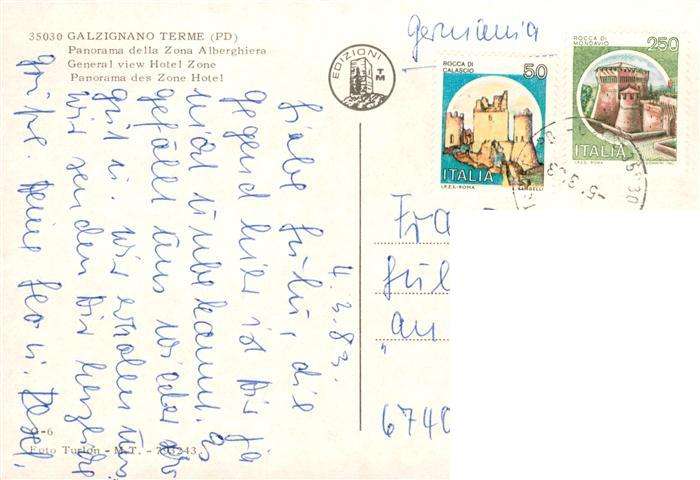 35030 GALZIGNANO TERME (PD)
Panorama della Zona Alberghiera
General view Hotel Zone
Panorama des Zone Hotel
EDIZIONI
TM
Germania
ROCCA DI
CALASCIO
50
ITALIA
I.P.Z.S.-ROMA
ROCCA DI
MONDAVIO
250
ITALIA
I.P.Z.S. ROMA
-5.3.83
4.3.83.
Liebe Juli, die
Gegend hier ist Dir ja
nicht unbekannt. Es
gefällt uns wieder
gut u. wir erholen uns
wir senden Dir herzliche
Grüße. Deine
Fra
Jul
an
"
6740
Foto Turlon - M.T. -